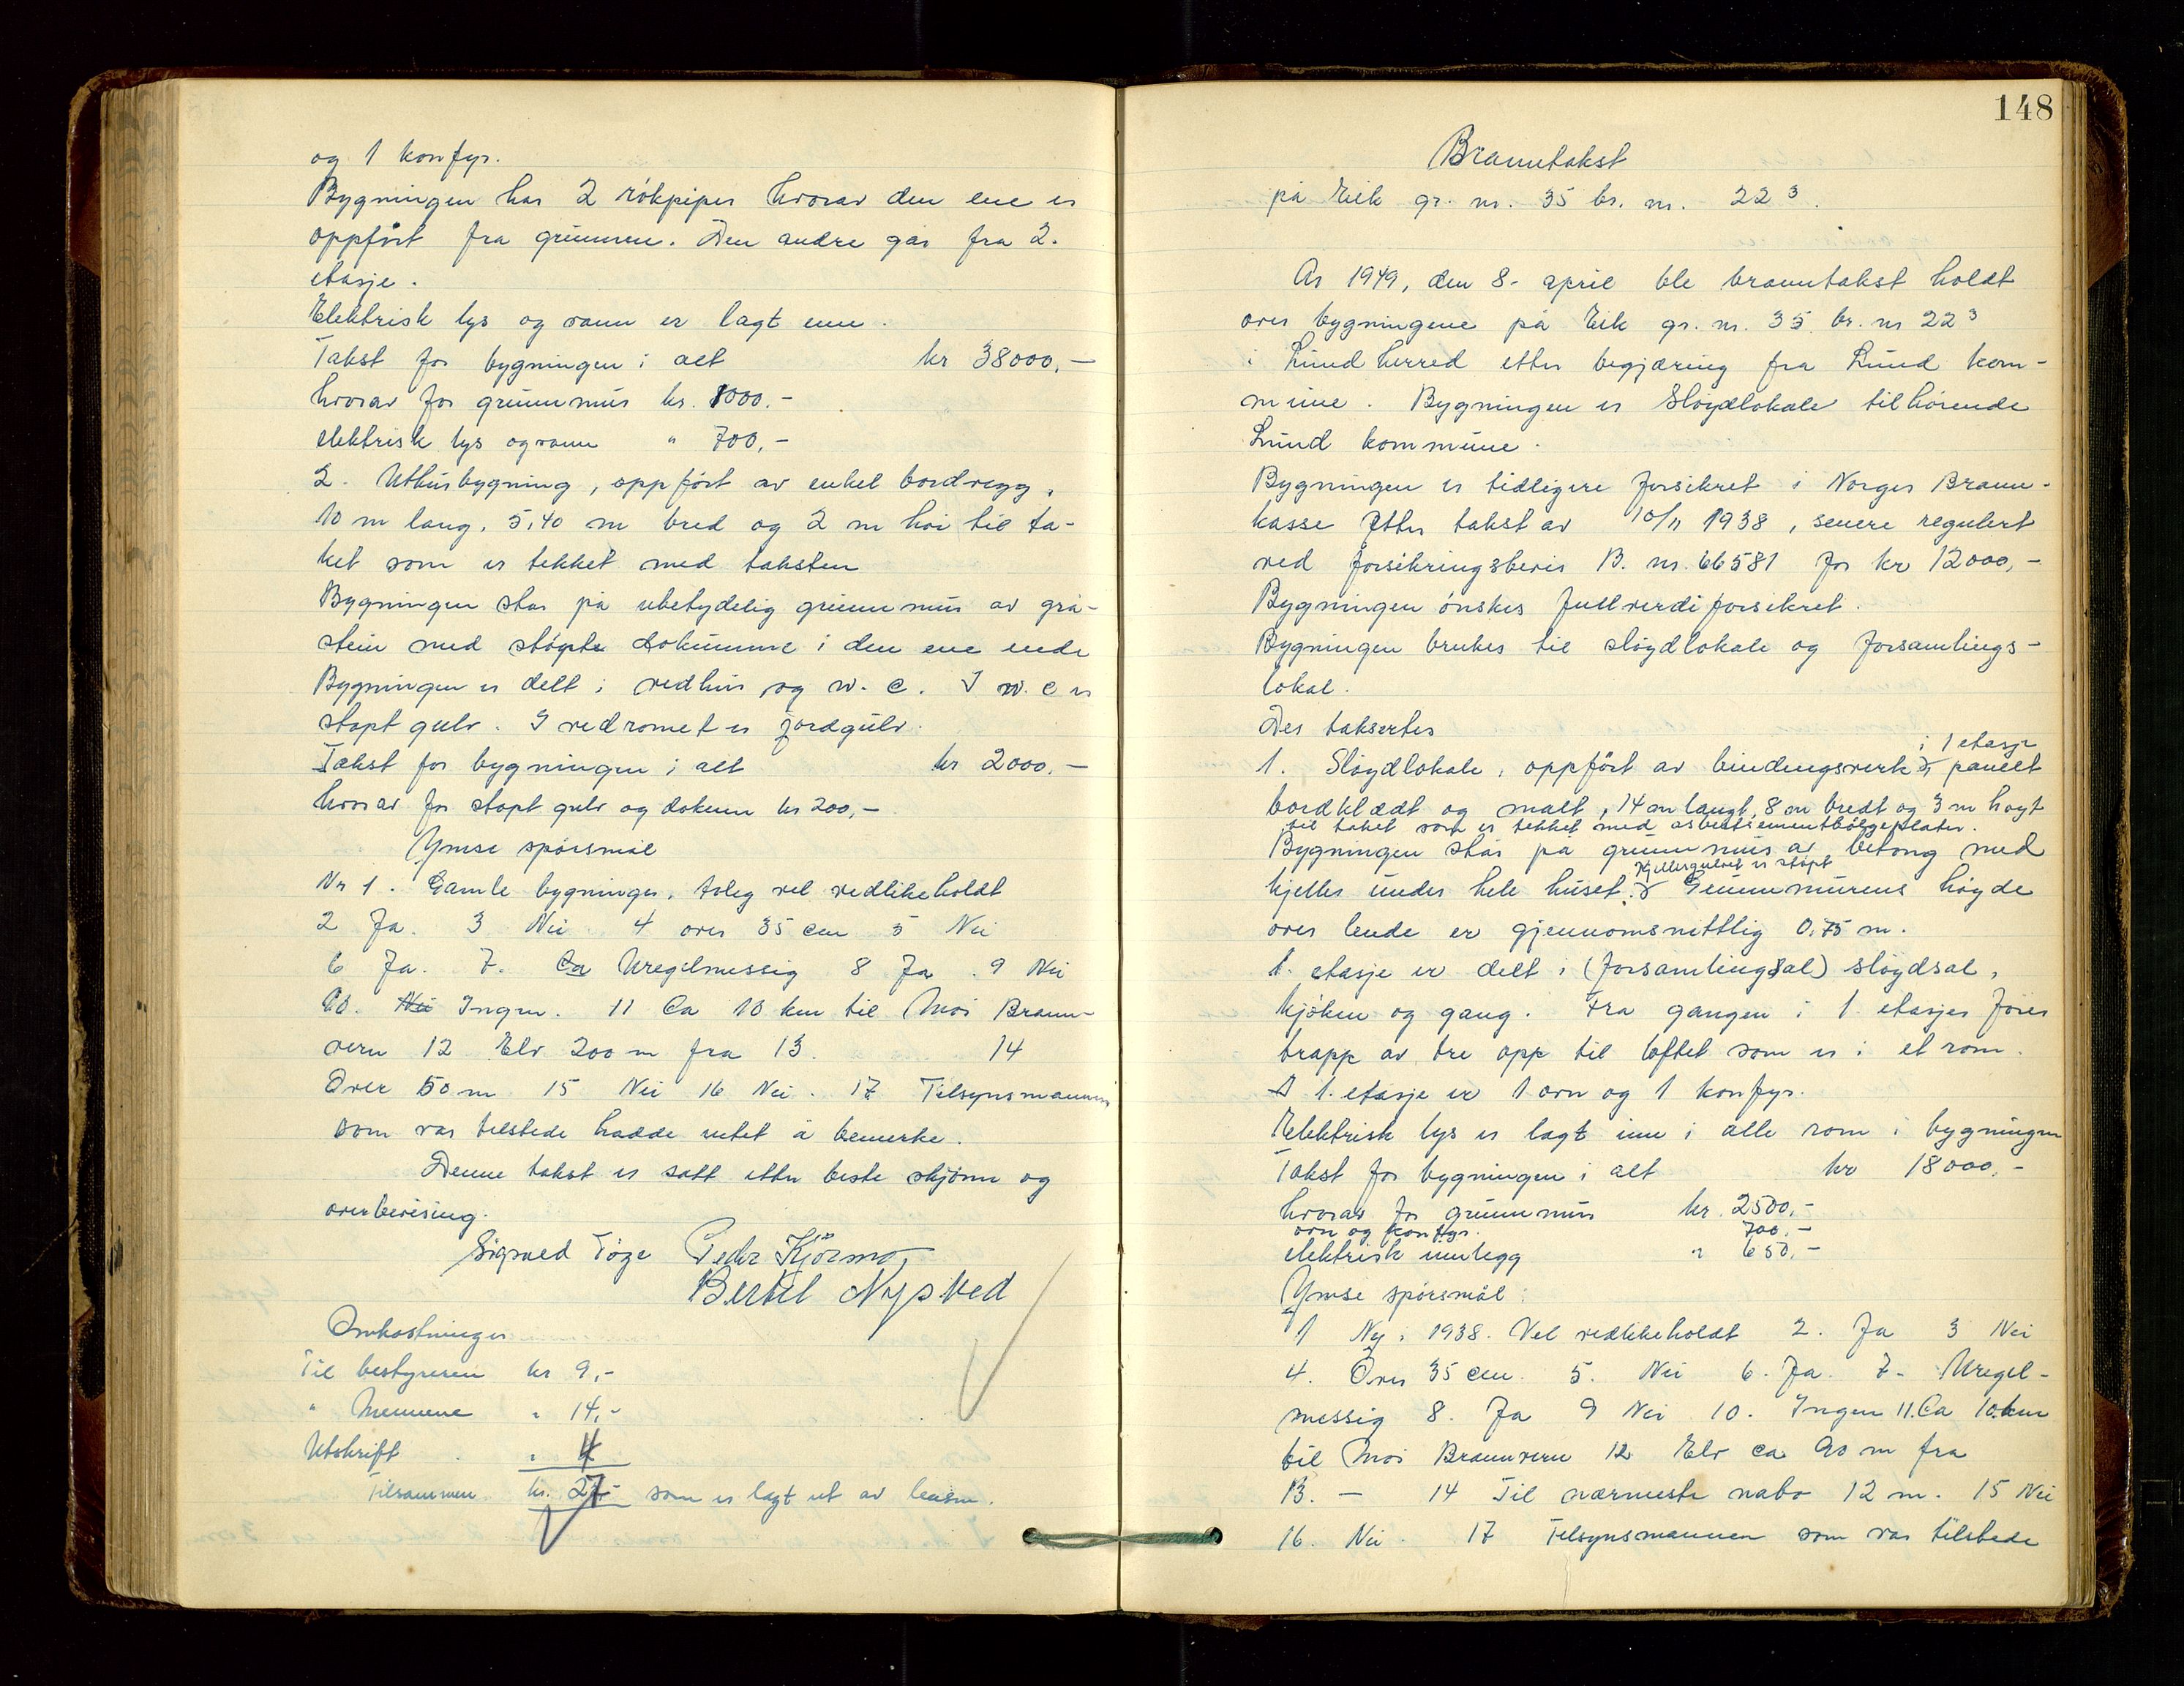 og 1 konfyr.
Bygningen har 2 rökpiper hvorav den ene er
oppfört fra grunnen. Den andre går fra 2.
etasje.
Elektrisk lys og vann er lagt inn.
Takst for bygningen i alt kr 38000,-
hvorav for grunnmur kr. 8000.-
elektrisk lys og vann " 700,-
2. Uthusbygning, oppfört av enkel bordvegg,
10 m lang, 5,40 m bred og 2 m høi til ta-
ket som er tekket med taksten
Bygningen står på ubetydelig grunnmur av grå-
stein med støpte dokumme i den ene ende
Bygningen er delt i vedhus og w. c. I w. c er
støpt gulv. I vedromet er jordgulv.
Takst for bygningen i alt kr 2000.-
hvorav for støpt gulv og dokum kr 200,-
Ymse spörsmål
Nr 1. Gamle bygninger, toleg vel vedlikeholdt
2 Ja. 3 Nei 4 over 35 cm 5 Nei
6 Ja. 7. Ca Uregelmessig 8 Ja. 9 Nei
10. Nei Ingen. 11 Ca 10 km til Moi Brann-
vern 12 Elv 200 m fra 13. 14
Over 50 m 15 Nei 16 Nei. 17 Tilsynsmannen
som var tilstede hadde intet å bemerke.
Denne takst er satt etter beste skjönn og
overbevisning.
Sigvald Töge Peder Kjörmo
Bertil Nysted
Omkostninger
Til bestyreren kr 9,-
" Mennene " 14,-
Utskrift " 4
Tilsammen kr. 27- som er lagt ut av lensm.
148
Branntakst
på Eik gr. nr. 35 br. nr. 22³.
År 1949, den 8- april ble branntakst holdt
over bygningene på Eik gr. nr. 35 br. nr 22³
i Lund herred etter begjæring fra Lund kom-
mune. Bygningen er Sløydlokale tilhörende
Lund kommune.
Bygningen er tidligere forsikret i Norges Brann-
kasse etter takst av 10/11 1938, senere regulert
ved forsikringsbevis B. nr. 66581 for kr 12000,-
Bygningen önskes fullverdiforsikret.
Bygningen brukes til slöydlokale og forsamlings-
lokal.
Der taksertes
i 1 etasje
1. Slöydlokale, oppfört av bindingsverk, panelt
bordklædt og malt, 14 m langt, 8 m bredt og 3 m høyt
til taket som er tekket med asbestsementbölgeplater.
Bygningen står på grunnmur av betong med
Kjellergulvet er støpt
kjeller under hele huset. Grunnmurens höyde
over lende er gjennomsnittlig 0,75 m.
1. etasje er delt i (forsamlingsal) slöydsal,
kjöken og gang. Fra gangen i 1. etasjer förer
trapp av tre opp til loftet som er i et rom.
I 1. etasje er 1 ovn og 1 konfyr.
Elektrisk lys er lagt inn i alle rom i bygningen
Takst for bygningen i alt kr 18000.-
hvorav for grunnmur kr. 2500,-
ovn og konfyr. 700,-
elektrisk innlegg " 650,-
Ymse spörsmål:
1 Ny i 1938. Vel vedlikeholdt 2. Ja 3 Nei
4. Over 35 cm. 5. Nei 6. Ja. 7- Uregel-
messig 8. Ja 9 Nei 10. Ingen 11. Ca 10 km
til Moi Brannvern 12 Elv ca 90 m fra
13. - 14 Til nærmeste nabo 12 m. 15 Nei
16. Nei. 17 Tilsynsmannen som var tilstede